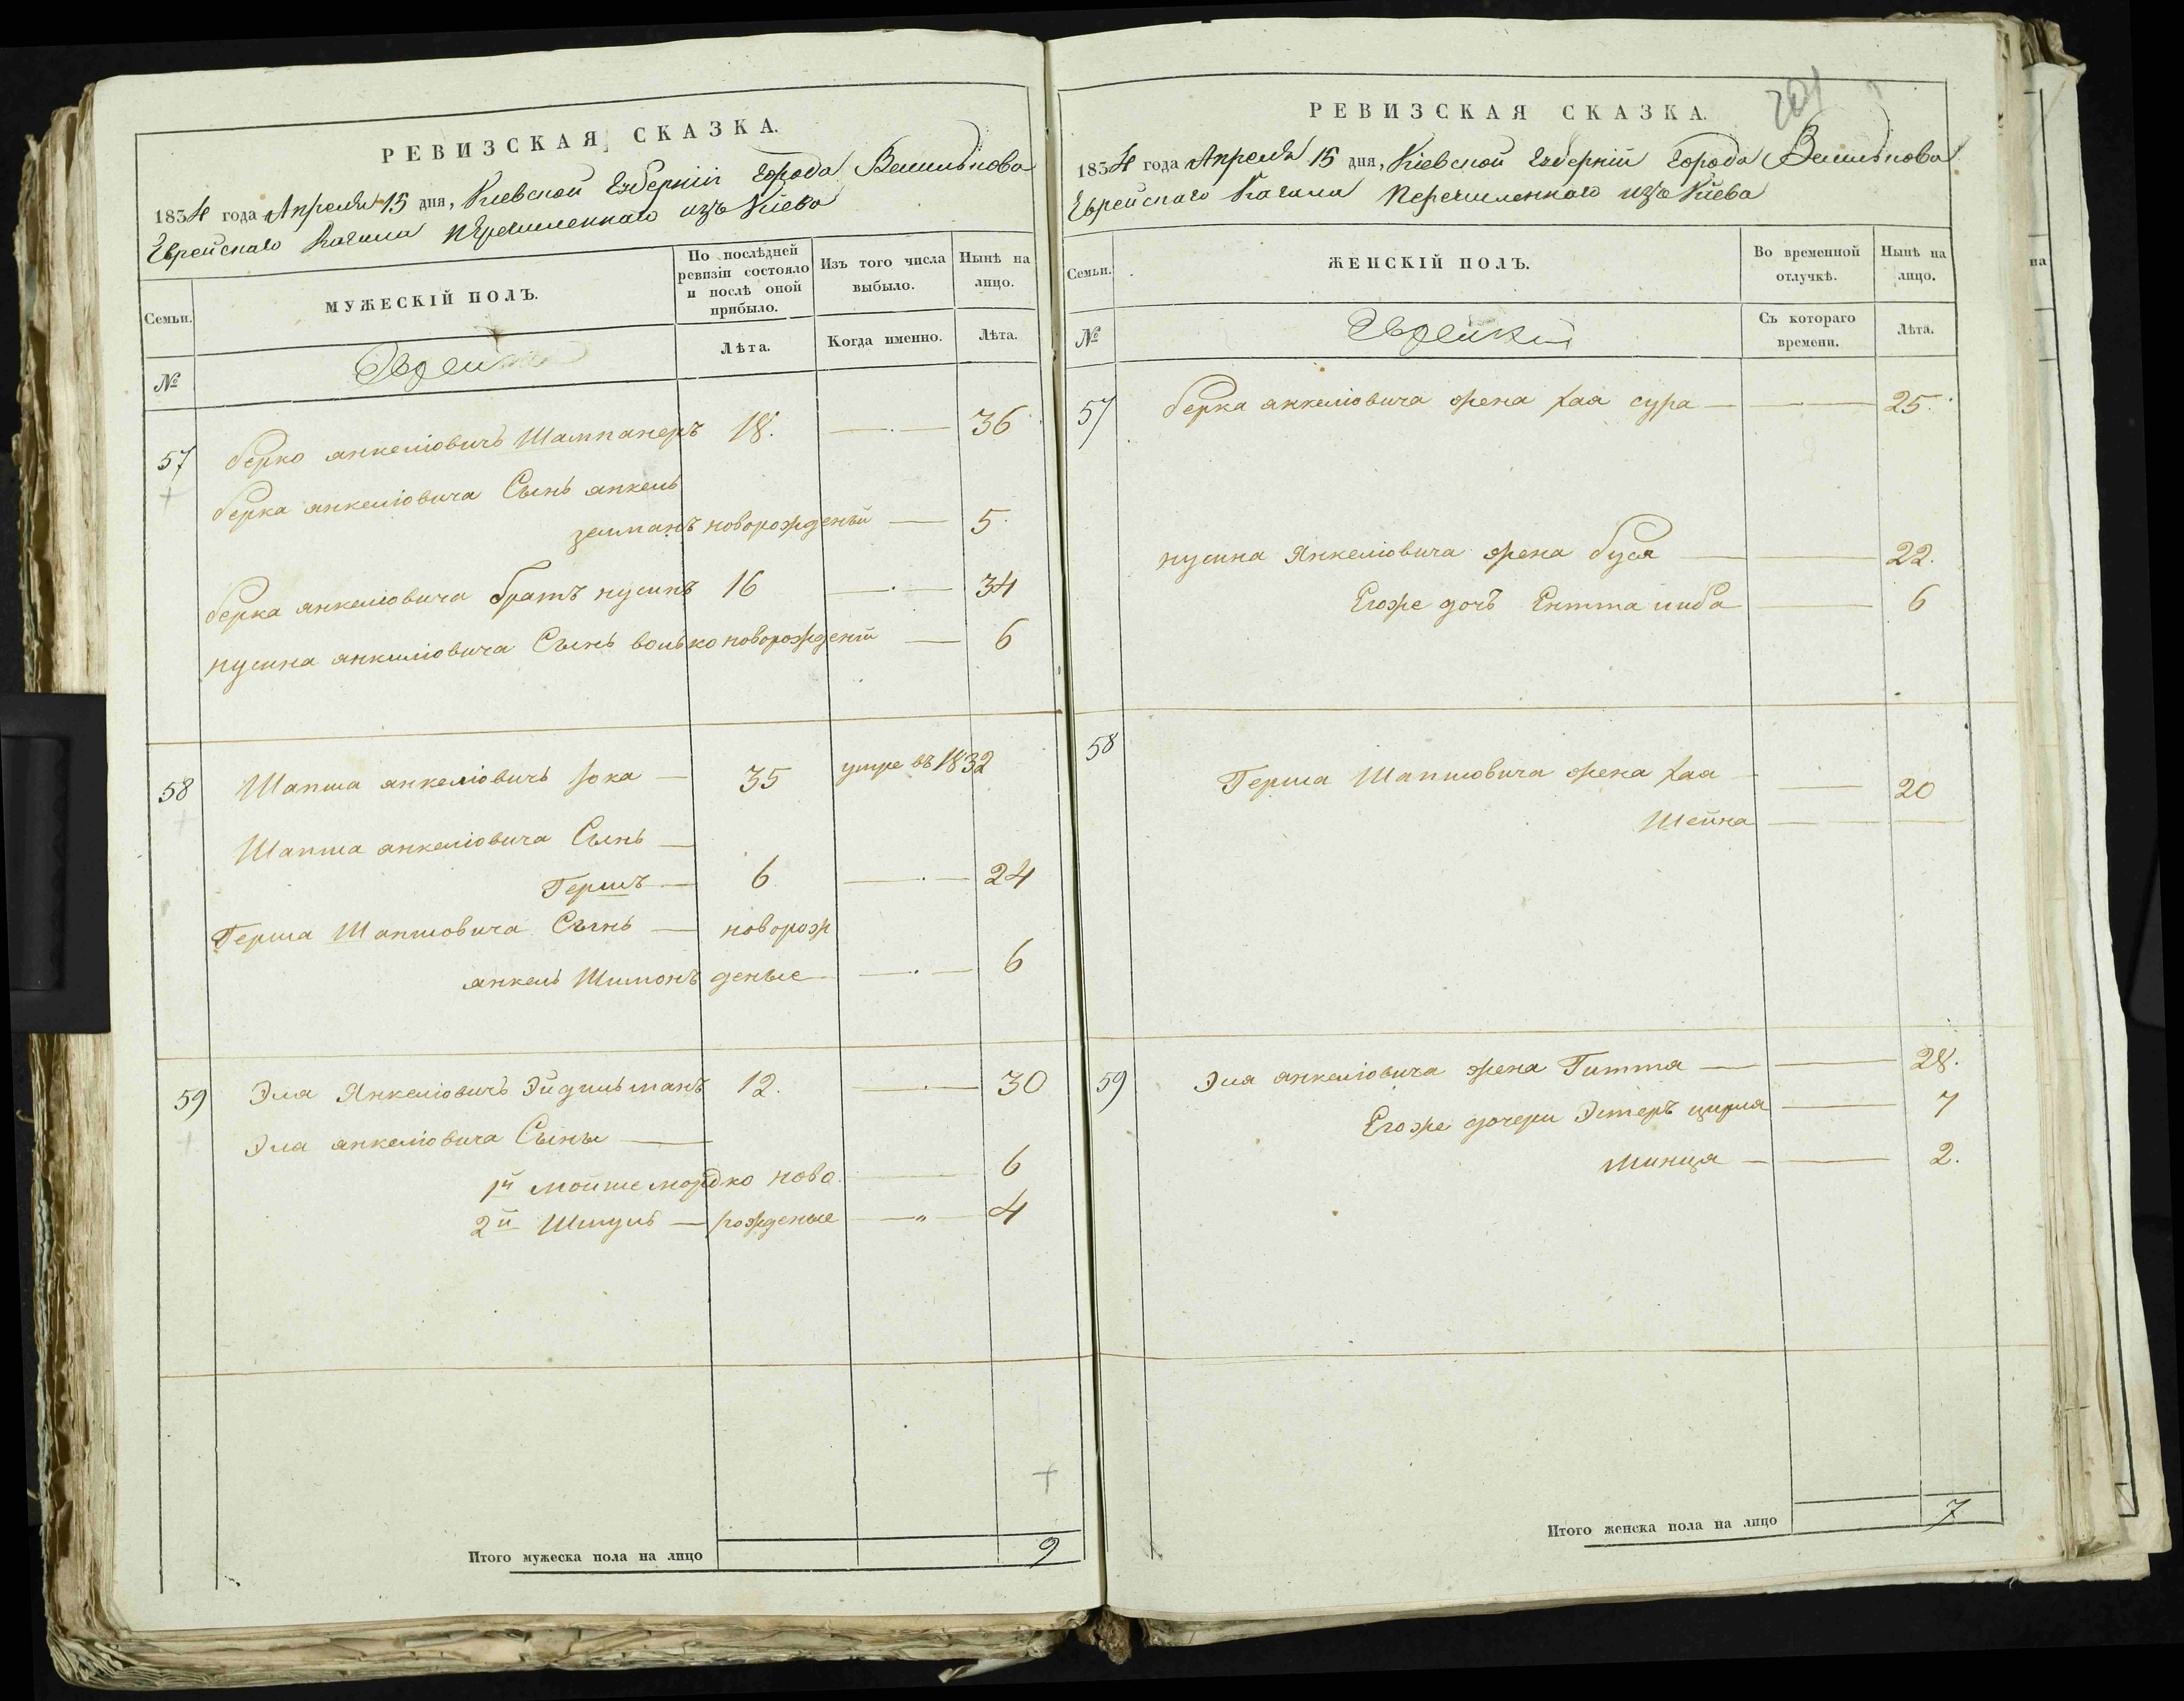 РЕВИЗСКАЯ СКАЗКА.
1834 года Апреля 15 дня, Киевской Губерніи Города Василькова
Еврейскаго Кагала перечисленнаго изъ Киева
Семьи.
МУЖЕСКІЙ ПОЛЪ.
По послѣдней ревизіи состояло и послѣ оной прибыло.
Изъ того числа выбыло.
Нынѣ на лицо.
№
Лѣта.
Когда именно.
Лѣта.
57 берко янкелiовичъ Шампанеръ 18. 36
берка янкелiовича Сынъ янкель
залманъ новорожденый 5
берка янкелiовича братъ нусинъ 16 34
нусина янкелiовича Сынъ волько новорожденiй 6
58 Шапша янкелiовичъ 35 умре въ 1832
Шапша янкелiовича Сынъ
Гершъ 6 24
Герша Шапшовича Сынъ новорож
янкель Шимонъ деные 6
59 Эля Янкелiовичъ Эйдильманъ 12. 30
Эля янкелiовича Сыны
1й мойше мордко ново 6
2й Шмуль рожденые 4
Итого мужеска пола на лицо 9
201
РЕВИЗСКАЯ СКАЗКА.
1834 года Апреля 15 дня, Кiевской Губерніи Города Василькова
Еврейскаго Кагала перечисленнаго изъ Киева
Семьи.
ЖЕНСКІЙ ПОЛЪ.
Во временной отлучкѣ.
Нынѣ на лицо.
№
Съ котораго времени.
Лѣта.
57 берка янкелiовича жена хая сура 25
нусина Янкелiовича жена буся 22.
Егоже дочъ Ентта либа 6
58
Герша Шапшовича жена хая 20
Шейна
59 Эля янкелiовича жена Гитта 28.
Егоже дочери Эстеръ цирля 7
минця 2.
Итого женска пола на лицо 7
на